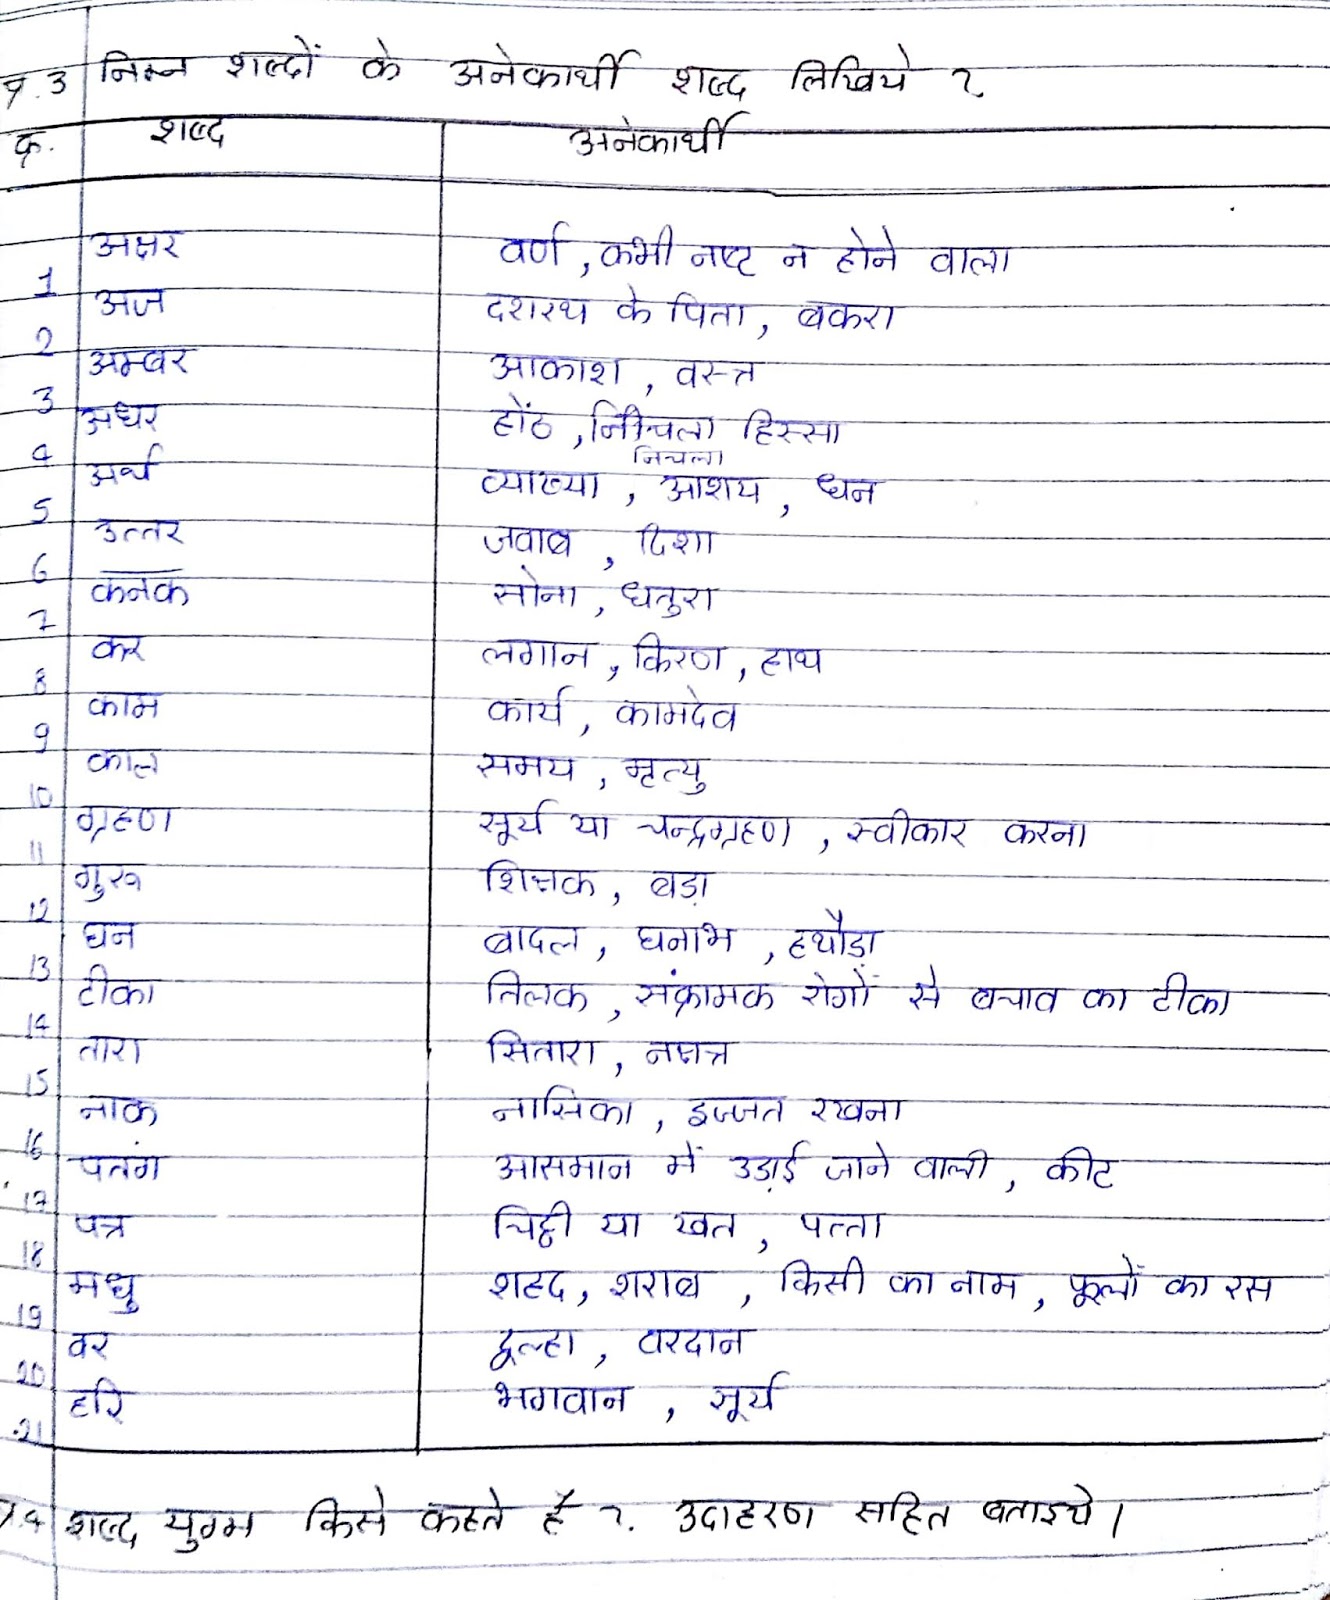 प्र.3 निम्न शब्दों के अनेकार्थी शब्द लिखिये ?
क्र. शब्द अनेकार्थी
1 अक्षर वर्ण , कभी नष्ट न होने वाला
2 अज दशरथ के पिता , बकरा
3 अम्बर आकाश , वस्त्र
4 अधर होंठ , निचिला हिस्सा
निचला
5 अर्थ व्याख्या , आशय , धन
6 उत्तर जवाब , दिशा
7 कनक सोना , धतुरा
8 कर लगान , किरण , हाथ
9 काम कार्य , कामदेव
10 काल समय , मृत्यु
11 ग्रहण सूर्य या चन्द्रग्रहण , स्वीकार करना
12 गुरू शिक्षक , बड़ा
13 घन बादल , घनाभ , हथौड़ा
14 टीका तिलक , संक्रामक रोगों से बचाव का टीका
15 तारा सितारा , नक्षत्र
16 नाक नासिका , इज्जत रखना
17 पतंग आसमान में उड़ाई जाने वाली , कीट
18 पत्र चिट्ठी या खत , पत्ता
19 मधु शहद , शराब , किसी का नाम , फूलों का रस
20 वर दूल्हा , वरदान
21 हरि भगवान , सूर्य
प्र.4 शब्द युग्म किसे कहते हैं ?. उदाहरण सहित बताइये ।